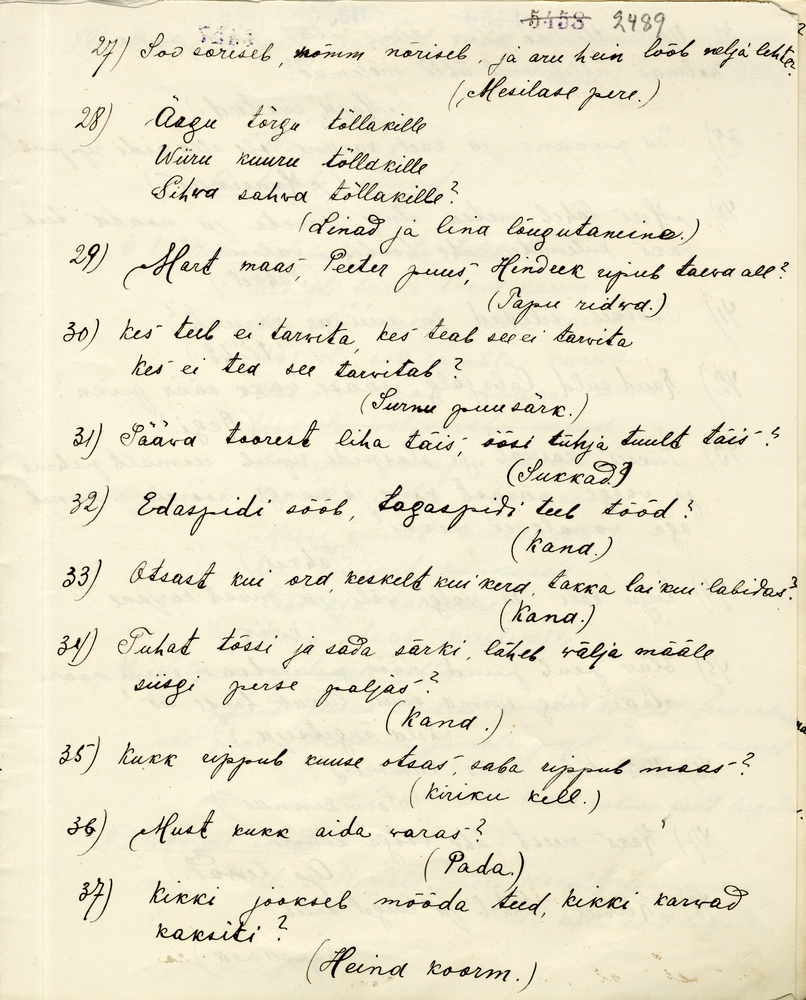 5458 2489
27) Soo soriseb, nõmm nõriseb, ja aru hein lööb nelja lehte?
(Mesilase pere.)
28) Äägu tõrgu tõllakille
Wiiru kuuru tõllakille
Sihwa sahwa tõllakille?
(Linad ja lina lõugutamine.)
29) Mart maas, Peeter puus, Hindrek ripub taewa all?
(Tapu ridwa.)
30) Kes teeb ei tarwita, kes teab see ei tarwita
kes ei tea see tarwitab?
(Surnu puusärk.)
31) Pääwa toorest liha täis, öösi tühja tuult täis?
(Sukkad?)
32) Edaspidi sööb, tagaspidi teeb tööd?
(Kana.)
33) Otsast kui ora, keskelt kui kera, takka lai kui labidas?
(Kana.)
34) Tuhat tõssi ja sada särki, läheb wälja määle
siisgi perse paljas?
(Kana.)
35) Kukk rippub kuuse otsas, saba rippub maas?
(Kiriku kell.)
36) Must kukk aida waras?
(Pada.)
37) Kikki jookseb mööda teed, kikki karwad
kaksiti?
(Heina koorm.)